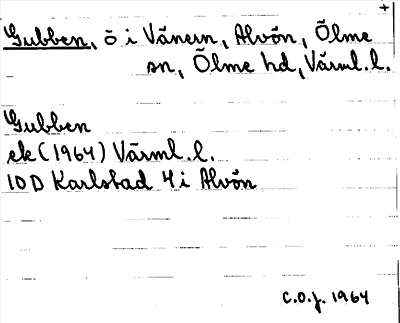 +
Gubben, ö i Vänern, Alvön, Ölme
sn, Ölme hd, Värml. l.
Gubben
ek (1964) Värml. l.
10 D Karlstad 4 i Alvön
C.O.J. 1964